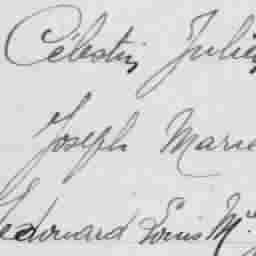 Célestin Julien
Joseph Marie
Fedouard Louis M.